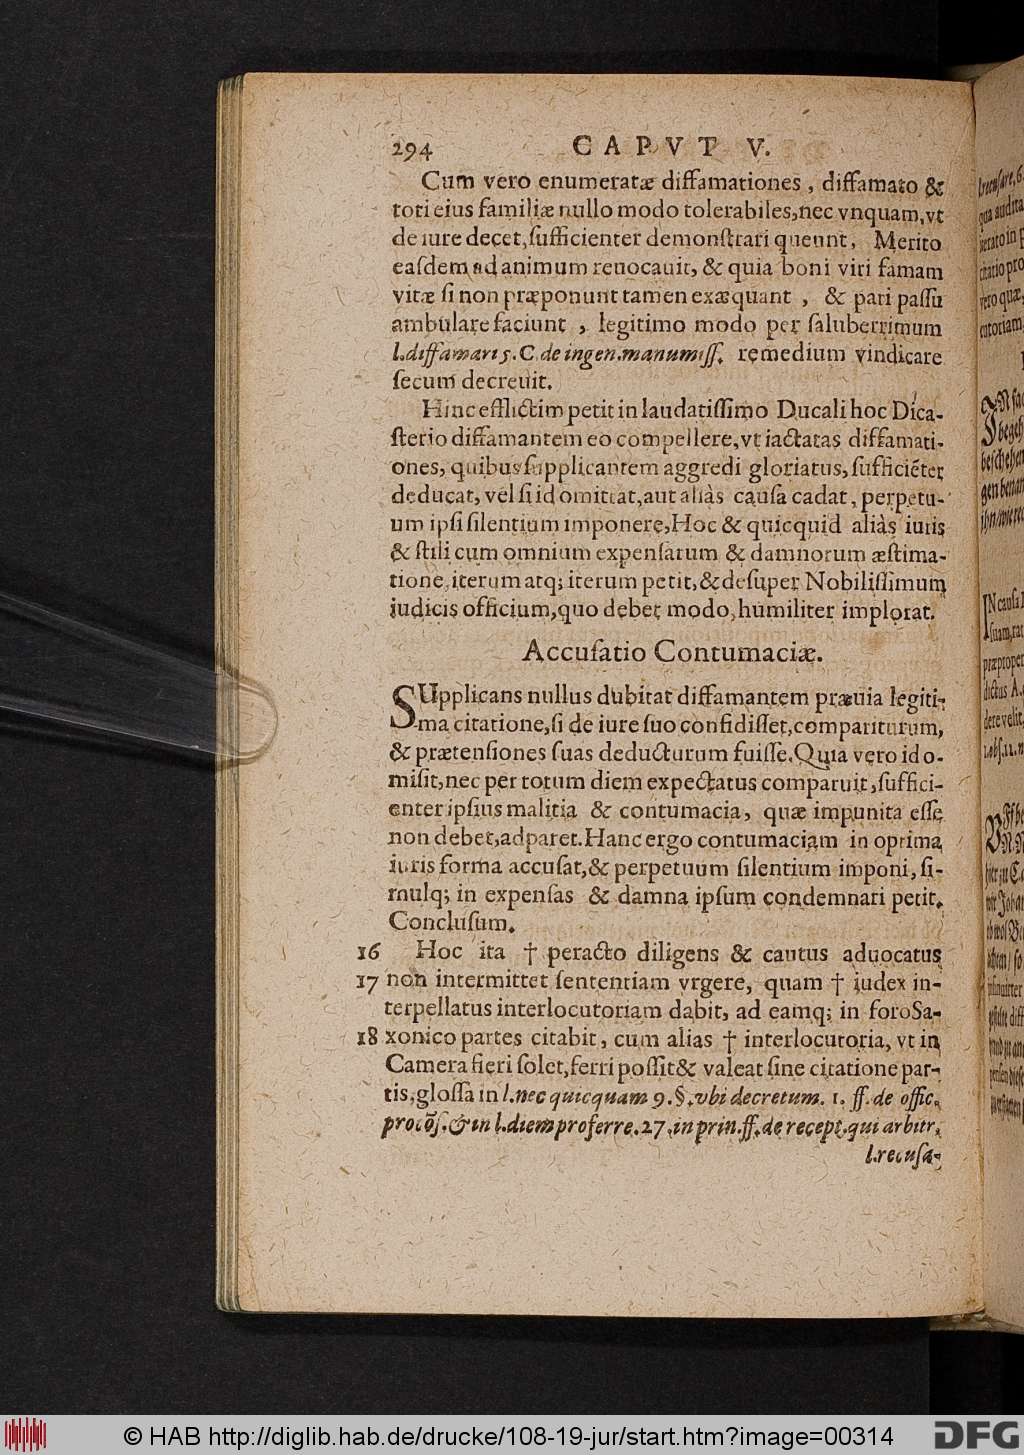 294 CAPVT V.
Cum vero enumeratæ diffamationes, diffamato &
toti eius familiæ nullo modo tolerabiles, nec vnquam, vt
de iure decet, ſufficienter demonſtrari queunt, Merito
eaſdem ad animum reuocauit, & quia boni viri famam
vitæ ſi non præponunt tamen exæquant, & pari paſſu
ambulare faciunt, legitimo modo per ſaluberrimum
l. diffamari 5. C de ingen. manumiſſ. remedium vindicare
ſecum decreuit.
Hinc efflictim petit in laudatiſſimo Ducali hoc Dica-
ſterio diffamantem eo compellere, vt iactatas diffamati-
ones, quibus ſupplicantem aggredi gloriatus, ſufficiẽter
deducat, vel ſi id omittat, aut aliàs cauſa cadat, perpetu-
um ipſi ſilentium imponere, Hoc & quicquid aliàs iuris
& ſtili cum omnium expenſarum & damnorum æſtima-
tione, iterum atq; iterum petit, & deſuper Nobiliſſimum
judicis officium, quo debet modo, humiliter implorat.
Accuſatio Contumaciæ.
SUpplicans nullus dubitat diffamantem præuia legiti-
ma citatione, ſi de iure ſuo confidiſſet, compariturum,
& prætenſiones ſuas deducturum fuiſſe. Quia vero id o-
miſit, nec per totum diem expectatus comparuit, ſuffici-
enter ipſius malitia & contumacia, quæ impunita eſſe
non debet, adparet. Hanc ergo contumaciam in optima
iuris forma accuſat, & perpetuum ſilentium imponi, ſi-
mulq; in expenſas & damna ipſum condemnari petit.
Concluſum.
16 Hoc ita † peracto diligens & cautus aduocatus
17 non intermittet ſententiam vrgere, quam † iudex in-
terpellatus interlocutoriam dabit, ad eamq; in foro Sa-
18 xonico partes citabit, cum alias † interlocutoria, vt in
Camera fieri ſolet, ferri poſſit & valeat ſine citatione par-
tis, gloſſa in l. nec quicquam 9. §. vbi decretum. 1. ff. de offic.
procõſ. & in l. diem proferre. 27. in prin. ff. de recept. qui arbitr.
l. recuſa-
© HAB http://diglib.hab.de/drucke/108-19-jur/start.htm?image=00314
DFG